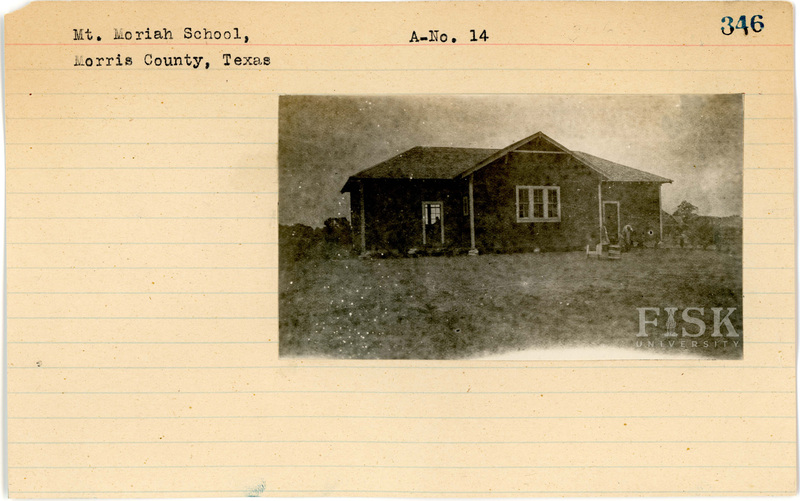 Mt. Moriah School, A-No. 14 346
Morris County, Texas
FISK
UNIVERSITY